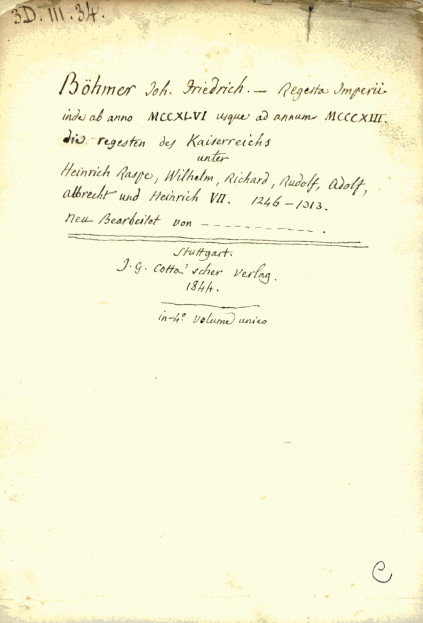 3D. III. 34.
Böhmer Joh. Friedrich. — Regesta Imperii
inde ab anno MCCXLVI usque ad annum MCCCXIII.
die regesten des Kaiserreichs
unter
Heinrich Raspe, Wilhelm, Richard, Rudolf, Adolf,
Albrecht und Heinrich VII. 1246 – 1313.
Neu Bearbeitet von – – – – – – – – – – – .
Stuttgart.
J. G. Cotta'scher Verlag.
1844.
in-4º volume unico
C